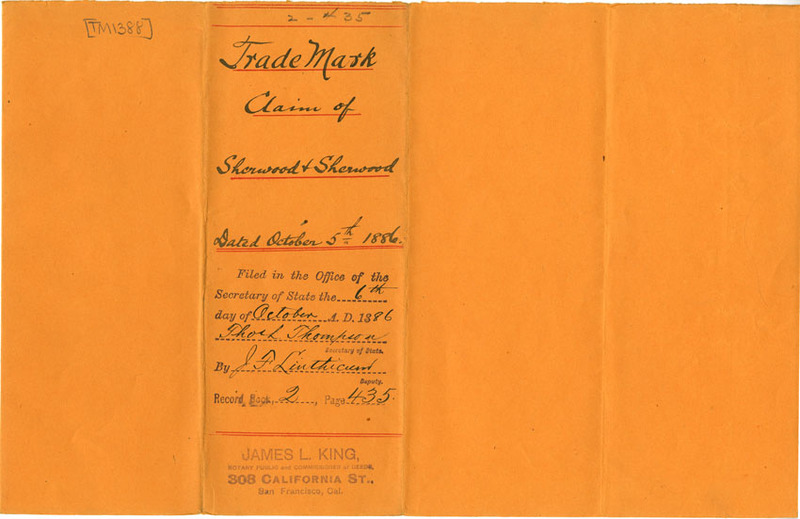 [TM1388]
2-435
Trade Mark
Claim of
Sherwood & Sherwood
Dated October 5th 1886.
Filed in the Office of the
Secretary of State the 6th
day of October A. D. 1886
Thos L Thompson
Secretary of State.
By J F Linthicum
Deputy.
Record Book, 2, Page 435.
JAMES L. KING,
NOTARY PUBLIC and COMMISSIONER of DEEDS,
308 CALIFORNIA ST.,
San Francisco, Cal.